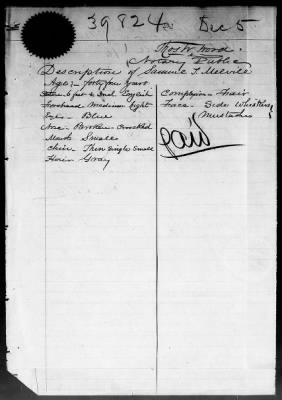 39824 Dec 5
Thos W. Wood.
Notary Public
Description of Samuel T. Melville
Age:- forty four years
6 feet 2 Ind English
Forehead Medium hight
Eyes- Blue
Nose- Broken- Crooked
Mouth Small
Chin- Thin Single Small
Hair Gray
Complexion- Fair
Face. Side Whiskers
Mustache
Paid